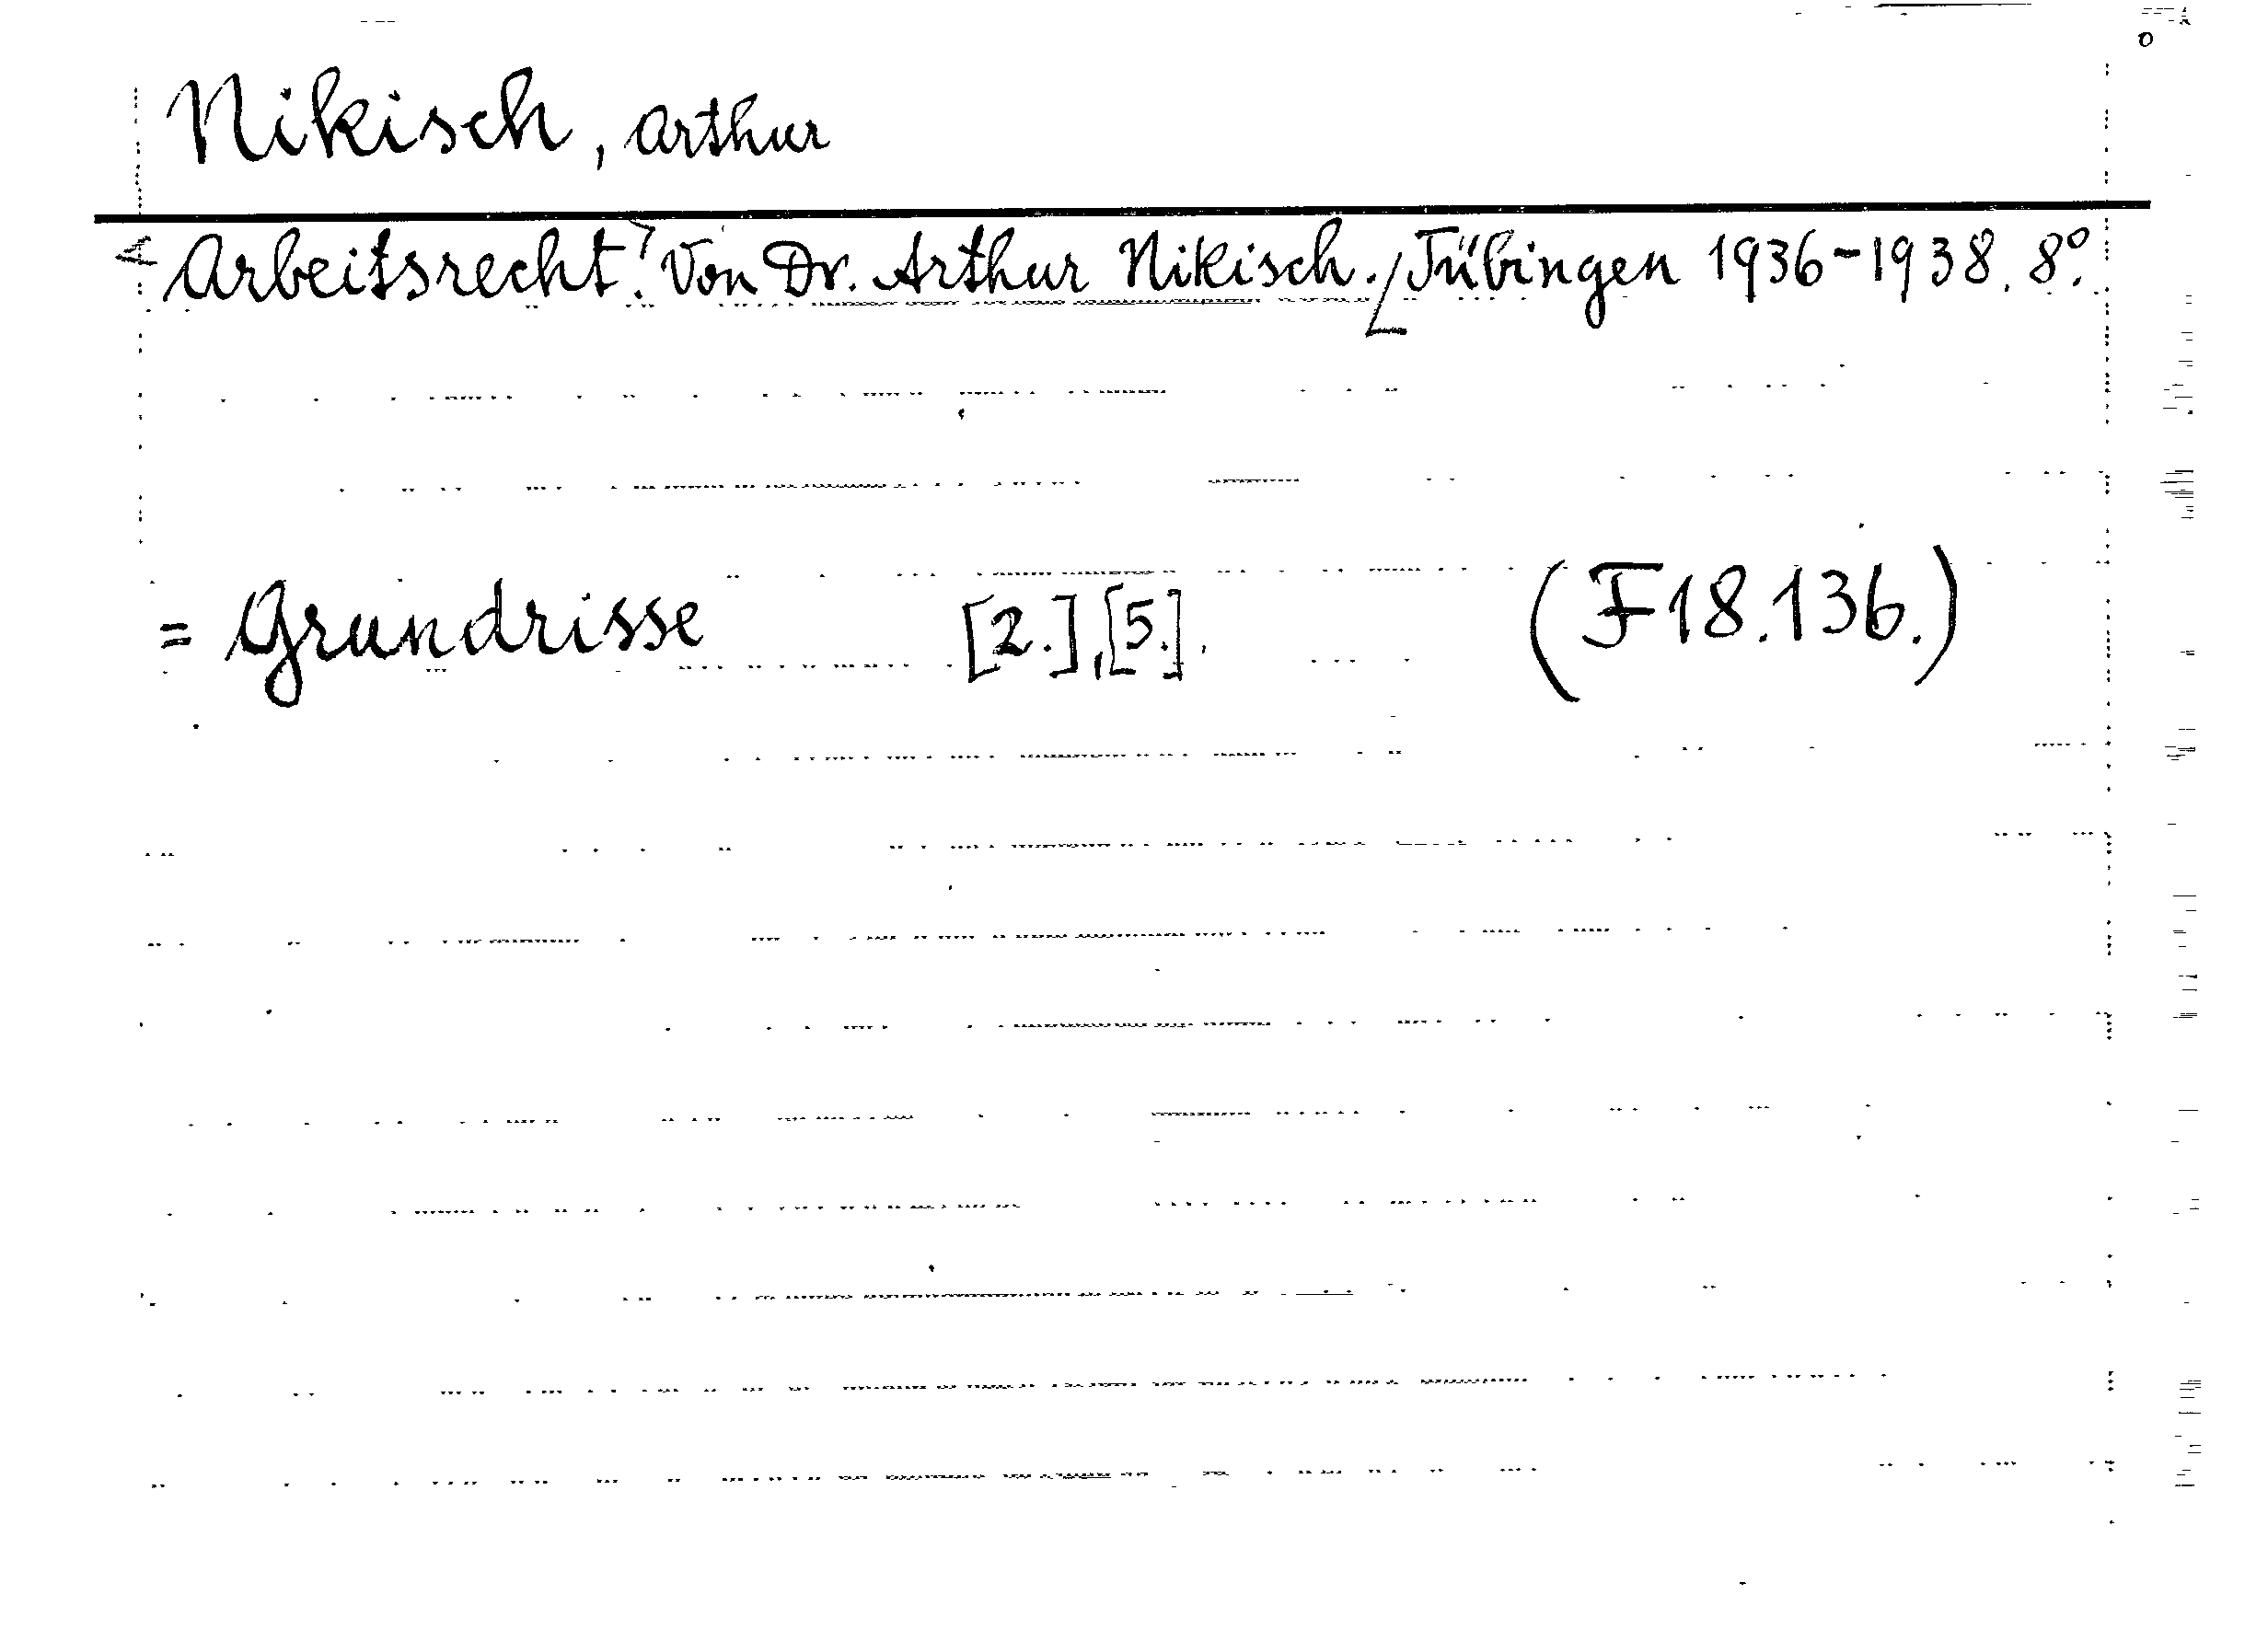 Nikisch, Arthur
Arbeitsrecht. Von Dr. Arthur Nikisch. Tübingen 1936-1938. 8º.
= Grundrisse [2.],[5.]. (F18.136.)